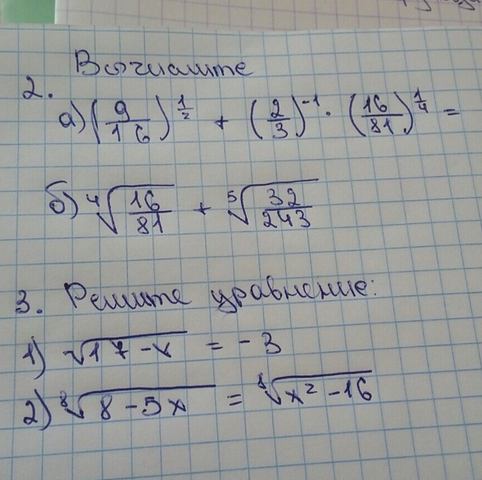 2. Вычислите
а) (9/16)^(1/2) + (2/3)^(-1) · (16/81)^(1/4) =
б) ⁴√(16/81) + ⁵√(32/243)
3. Решите уравнение:
1) √(17-x) = -3
2) ⁸√(8-5x) = ⁸√(x²-16)